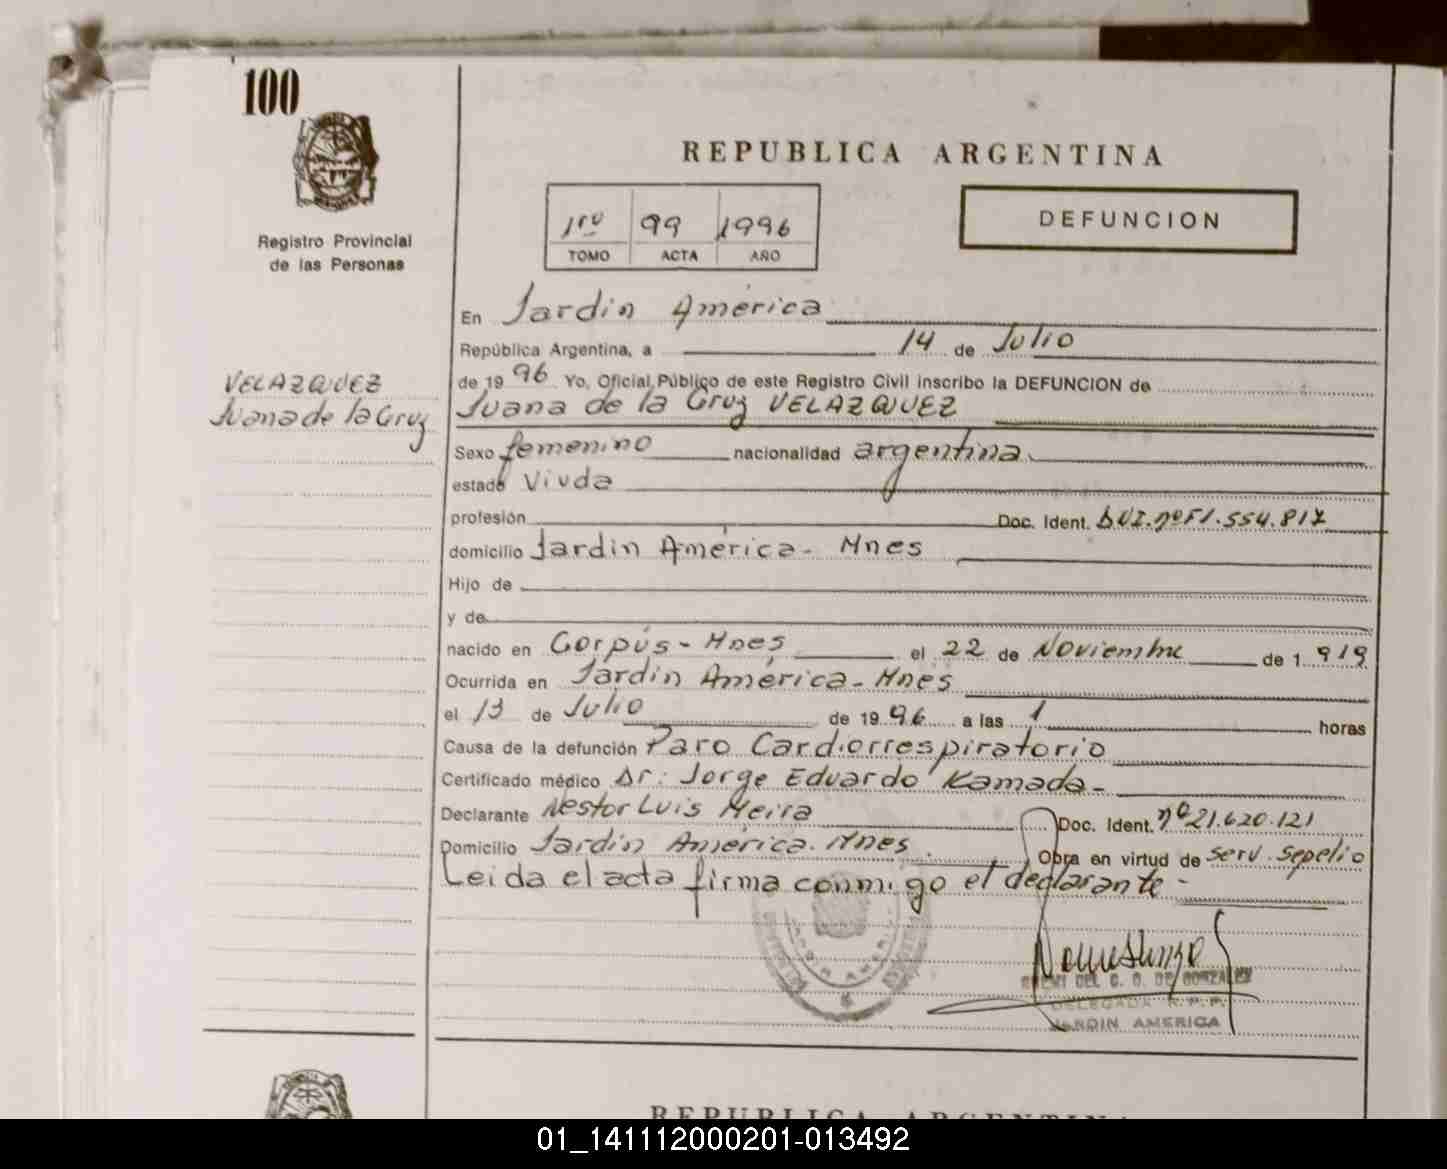 100
REPUBLICA ARGENTINA
Registro Provincial
de las Personas
1ro 99 1996
TOMO ACTA AÑO
DEFUNCION
En Jardín América
República Argentina, a 14 de Julio
VELAZQUEZ
Juana de la Cruz
de 1996 Yo, Oficial Público de este Registro Civil inscribo la DEFUNCION de
Juana de la Cruz VELAZQUEZ
Sexo femenino nacionalidad argentina
estado Viuda
profesión Doc. Ident. DNI. nº F1.554.817
domicilio Jardín América - Mnes
Hijo de
y de
nacido en Corpús - Mnes el 22 de Noviembre de 1919
Ocurrida en Jardín América - Mnes
el 13 de Julio de 1996 a las 1 horas
Causa de la defunción Paro Cardiorrespiratorio
Certificado médico Dr: Jorge Eduardo Kamada -
Declarante Nestor Luis Meira Doc. Ident. nº 21.620.121
Domicilio Jardín América. Mnes. Obra en virtud de serv. sepelio
Leida el acta firma conmigo el declarante -
DEL C. O. DE GONZALEZ
DELEGADA R.P.P.
JARDIN AMERICA
REPUBLICA ARGENTINA
01_141112000201-013492